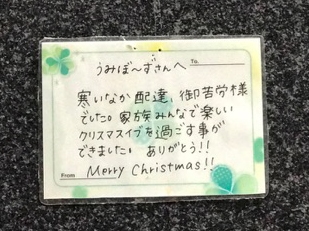 To.
うみぼーずさんへ
寒いなか配達、御苦労様
でした。家族みんなで楽しい
クリスマスイブを過ごす事が
できました。ありがとう!!
From Merry Christmas!!